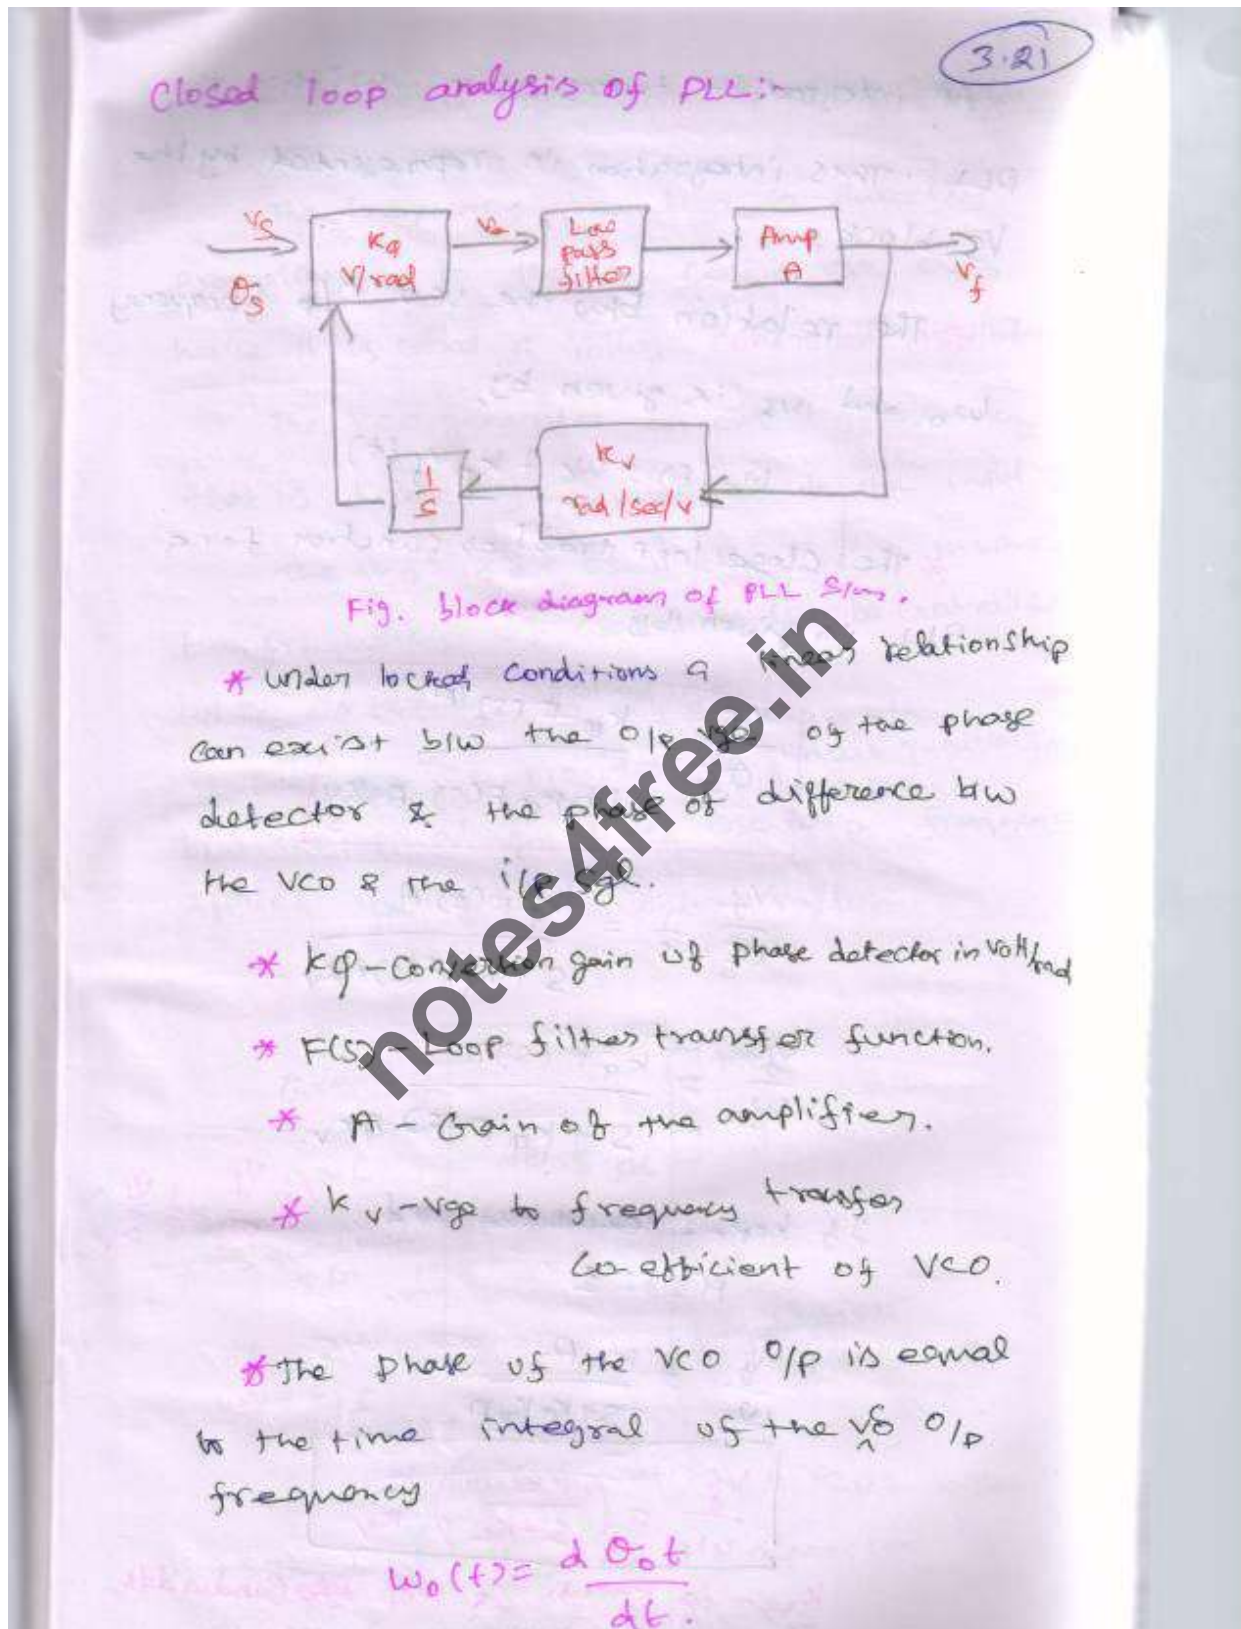 3.21
Closed loop analysis of PLL:-
Vs
θs
Kφ
V/rad
Ve
Low
pass
filter
Amp
A
Vf
Kv
rad/sec/v
1/S
Fig. block diagram of PLL S/m.
* under locked conditions a linear relationship
can exist b/w the o/p vge of the phase
detector & the phase of difference b/w
the VCO & the i/p sgl.
* Kφ - Conversion gain of phase detector in volt/rad
* F(S) - Loop filter transfer function.
* A - Gain of the amplifier.
* Kv - vge to frequency transfer
Co-efficient of VCO.
* The phase of the VCO o/p is equal
to the time integral of the o/p
frequency
ω₀(t) = d θ₀t
dt.
notes4free.in